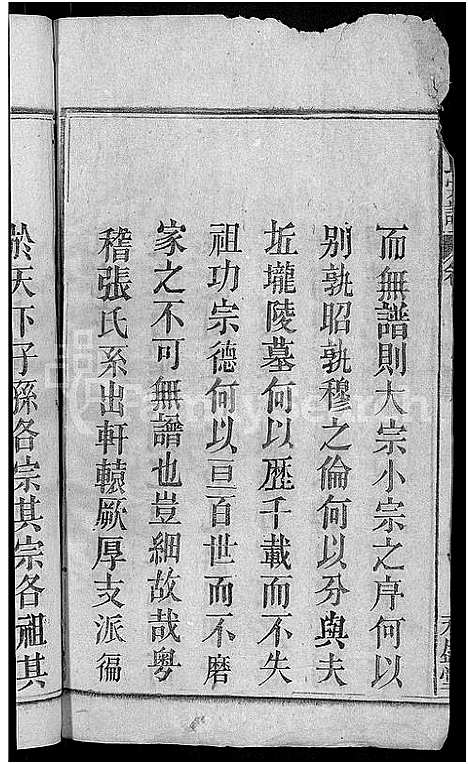 而無譜則大宗小宗之序何以
別孰昭孰穆之倫何以分與夫
坵壠陵墓何以歷千載而不失
祖功宗德何以亘百世而不磨
家之不可無譜也豈細故哉粵
稽張氏系出軒轅厥厚支派徧
於天下子孫各宗其宗各祖其